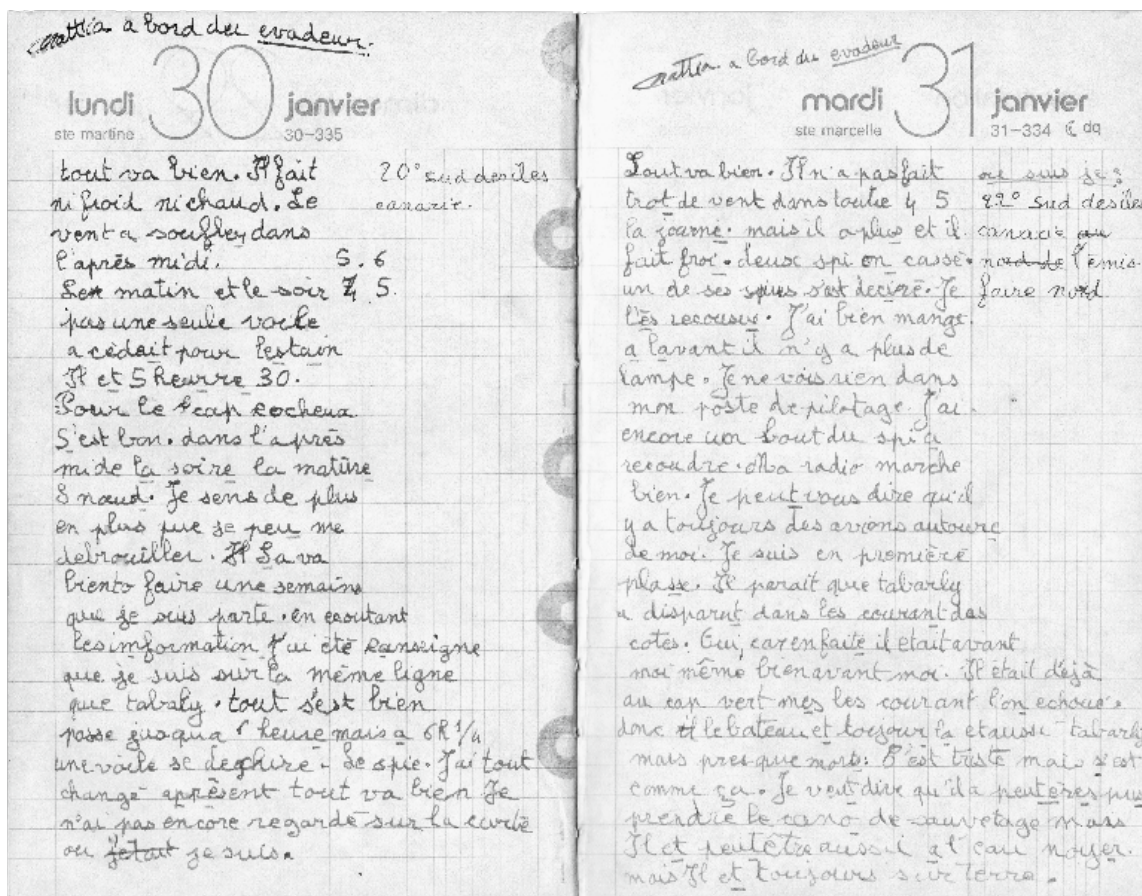 mattia a bord du evadeur.
lundi 30 janvier
ste martine 30-335
tout va bien. Il fait
ni froid ni chaud. Le
vent a soufley dans
l'après midi. 5.6
Le matin et le soir 4 5.
pas une seule voile
a cèdait pour lestain
Il et 5 heurre 30.
Pour le cap rocheua
S'est bon. dans l'après
mi de la soire la matûre
8 nœud. Je sens de plus
en plus que je peu me
debrouiller. Il Sa va
biento faire une semains
que je suis parte. en ecoutant
les information j'ai été ranseigne
que je suis sur la même ligne
que tabaly. tout s'est bien
passe jusqua 6 heure mais a 6R 1/4
une voile se dechire. Le spie. J'ai tout
changé aprèsent tout va bien Je
n'ai pas encore regardé sur la carte
ou j'etait je suis.
20° sud des îles
canarie.
mattia a bord du evadeur
mardi 31 janvier
ste marcelle 31-334 dq
Tout va bien. Il n'a pas fait
trot de vent dans toutte 4 5
la journé. mais il a plus et il
fait froi. deux spi on casse.
un de ses spies s'est deciré. Je
l'ès recousue. J'ai bien mangé.
a lavant il n'y a plus de
lampe. Je ne vois rien dans
mon poste de pilotage. J'ai
encore un bout du spi a
recoudre. Ma radio marche
bien. Je peut vous dire qu'il
y a toujours des avions autoure
de moi. Je suis en première
plasse. Il parait que tabarly
a disparut dans les courant das
cotes. Oui, car en faite il etait avant
moi même bien avant moi. Il était déjà
au cap vert mes les courant l'on echoué.
donc il le bateau et toujour la et aussi tabarl
mais presque mort. C'est triste mais s'est
comme ça. Je veut dire qu'il a peut ères pus
prendre le cano de sauvetage mais
Il et peut être aussi a l'eau noyer.
mais Il et toujours sur terre.
ou suis je?
22° sud des iles
canarie au
nord de l'emis
faire nord